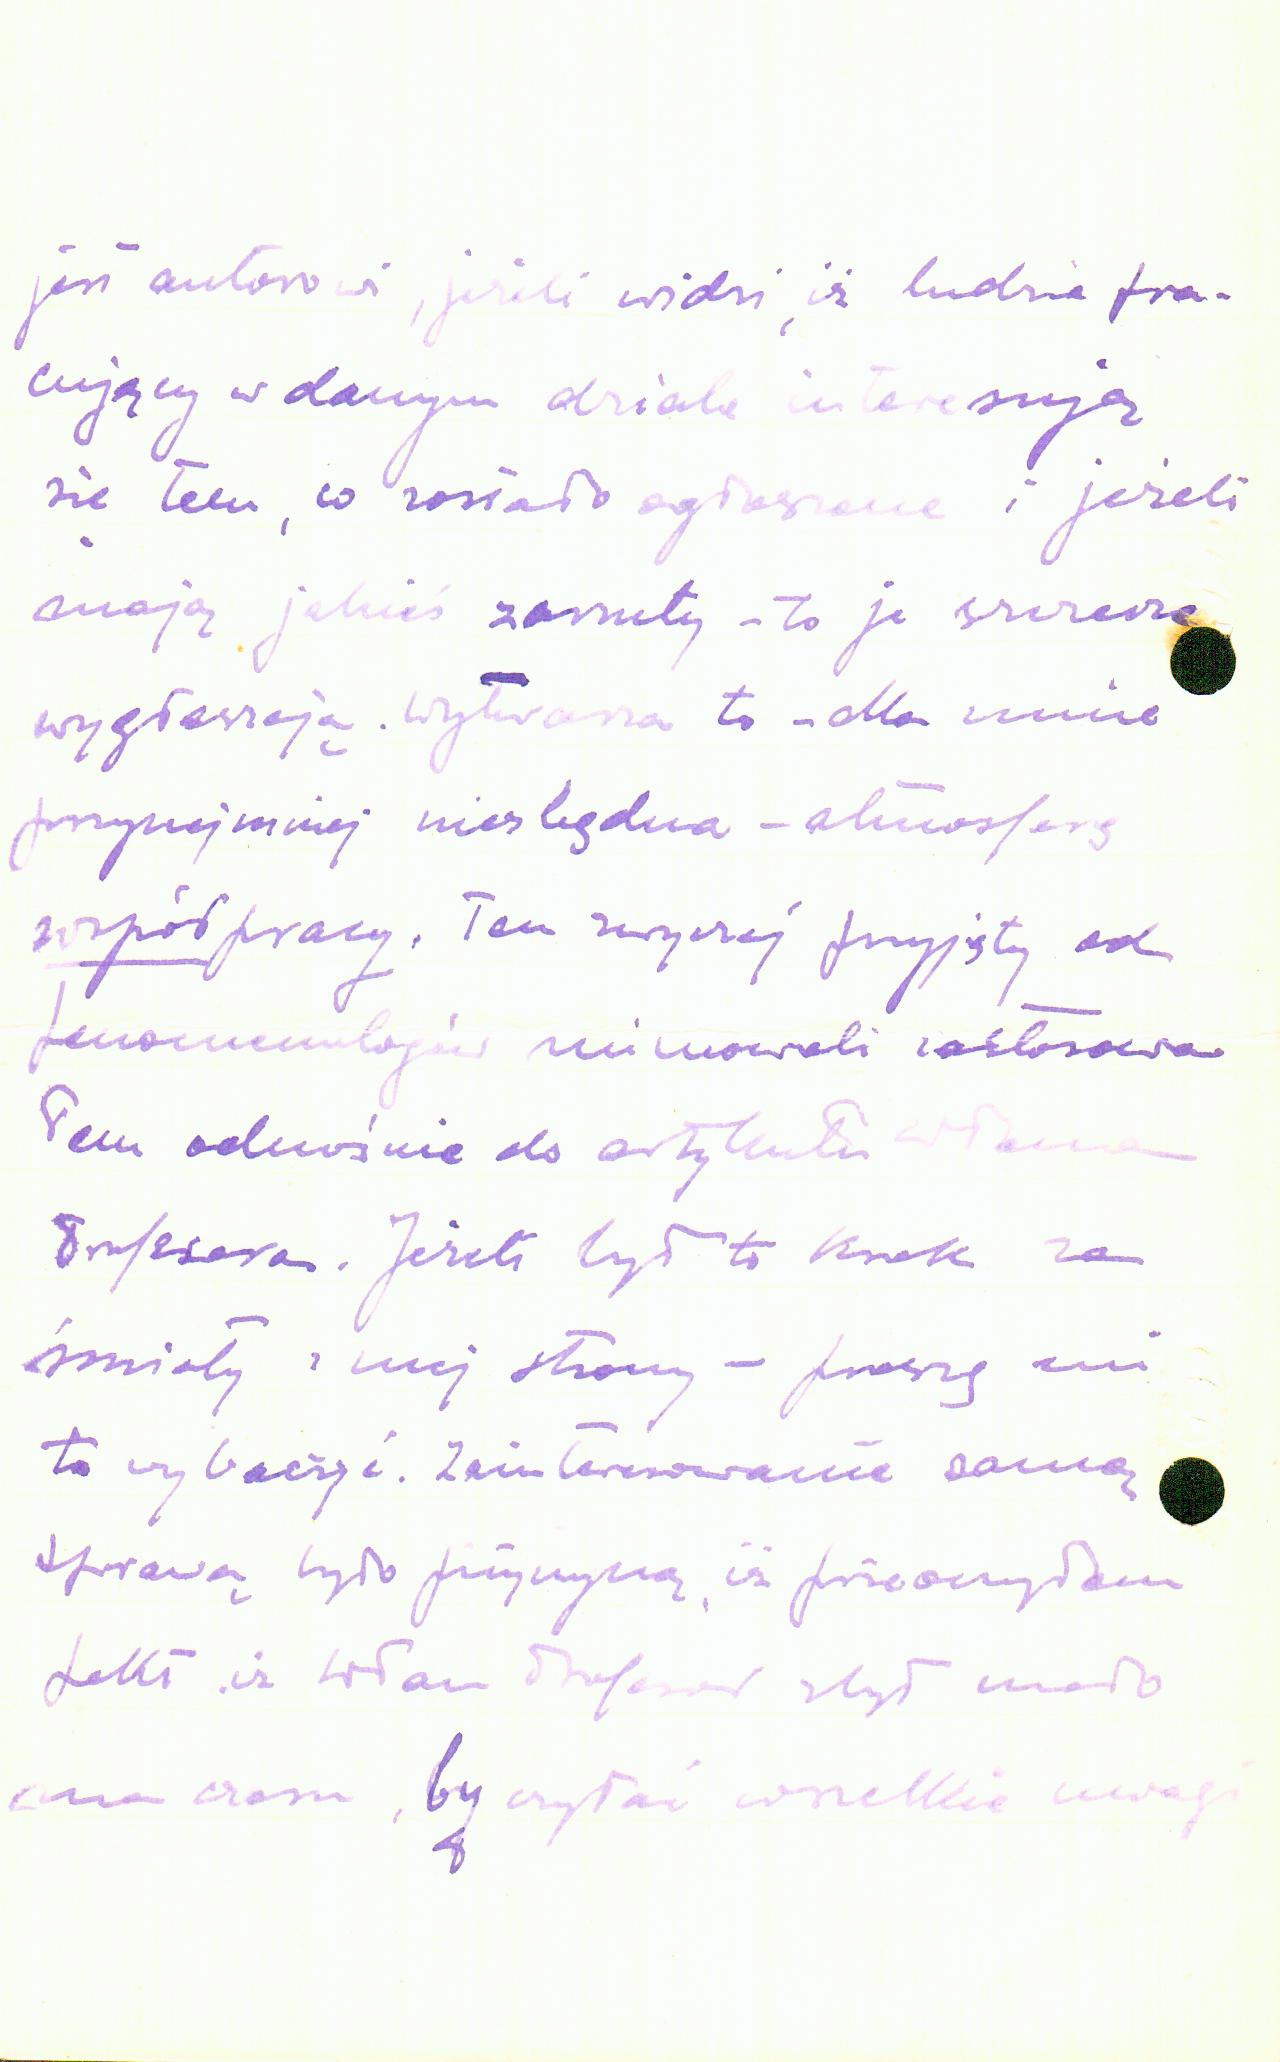 jest autorowi, jeżeli widzi, iż ludzie pra-
cujący w danym dziale interesują
się tem, co zostało ogłoszone i jeżeli
mają jakieś zarzuty – to je szczerze
wygłaszają. Wytwarza to – dla mnie
przynajmniej niezbędną – atmosferę
współpracy. Ten zwyczaj przyjęty od
fenomenologów mimowoli zastosowa
łem odnośnie do artykułu WPana
Profesora. Jeżeli był to krok za
śmiały z mej strony – proszę mi
to wybaczyć. Zainteresowanie samą
sprawą było przyczyną, iż przeoczyłem
fakt, iż WPan Profesor zbyt mało
ma czasu, by czytać wszelkie uwagi
8